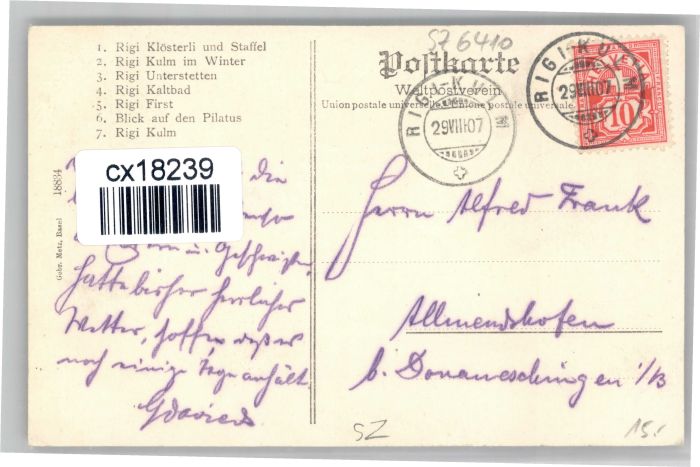 1. Rigi Klösterli und Staffel
2. Rigi Kulm im Winter
3. Rigi Unterstetten
4. Rigi Kaltbad
5. Rigi First
6. Blick auf den Pilatus
7. Rigi Kulm
SZ 6410
Postkarte
Weltpostverein
Union postale universelle
Unione postale universale
RIGI-KULM
29VIII07
RIGI-KULM
29VIII07
10
18884
Gebr. Metz, Basel
cx18239
die
u. Geschwister,
hatte bisher herrliches
Wetter, hoffen, daß es
noch einige Tage anhält.
Herrn Alfred Frank
Allmendshofen
b. Donaueschingen i/B
SZ
15.-